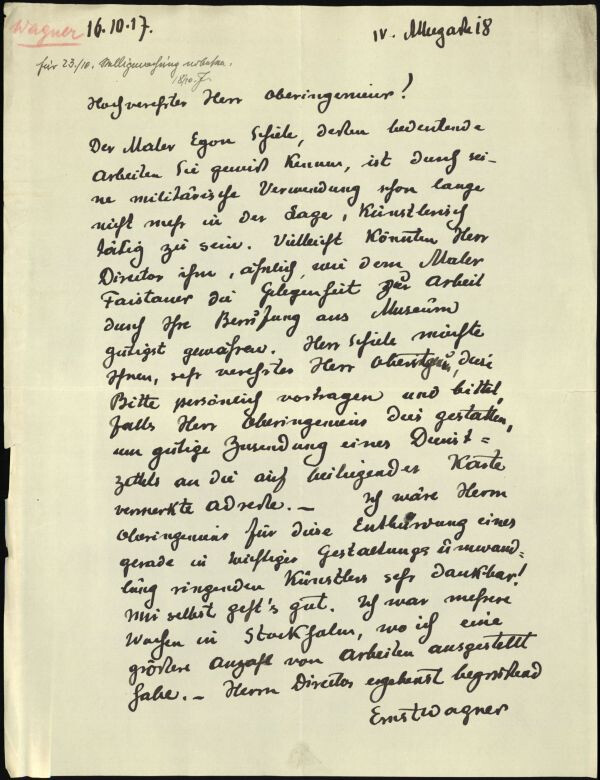 Wagner 16.10.17. IV. Mugasse 18
für 23./10.
Hochverehrter Herr Oberingenieur!
Der Maler Egon Schiele, dessen bedeutende
Arbeiten Sie gewiß kennen, ist durch sei-
ne militärische Verwendung schon lange
nicht mehr in der Lage, künstlerisch
tätig zu sein. Vielleicht könnten Herr
Director ihm, ähnlich, wie dem Maler
Faistauer die Gelegenheit zur Arbeit
durch Ihre Berufung ans Museum
gütigst gewähren. Herr Schiele möchte
Ihnen, sehr verehrter Herr diese
Bitte persönlich vortragen und bittet,
falls Herr Oberingenieur dies gestatten,
um gütige Zusendung eines Dienst=
zettels an die auf beiliegender Karte
vermerkte Adresse. — Ich wäre Herrn
Oberingenieur für diese eines
gerade in wichtiger Gestaltungsumwand=
lung ringenden Künstlers sehr dankbar!
Mir selbst geht's gut. Ich war mehrere
Wochen in Stockholm, wo ich eine
größere Anzahl von Arbeiten ausgestellt
habe. — Herrn Director ergebenst begrüßend
Ernst Wagner